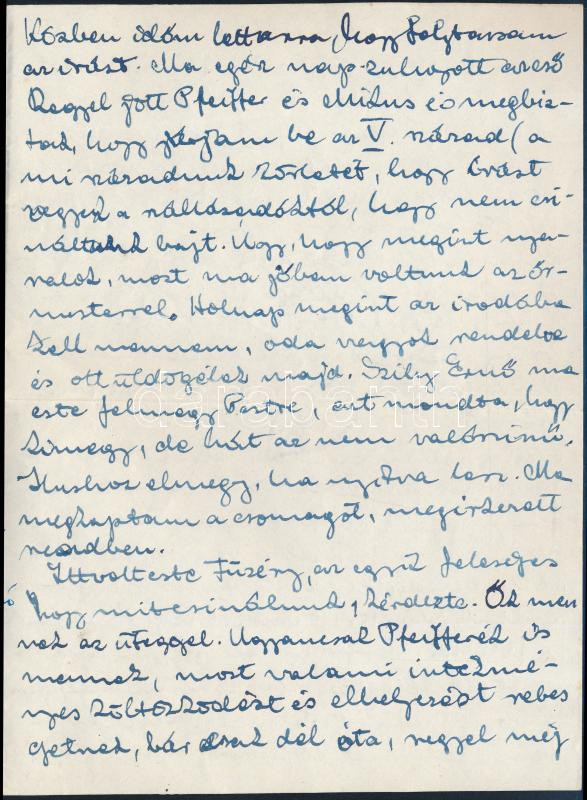 Közben időm lett arra, hogy folytassam
az írást. Ma egész nap zuhogott az eső
Reggel jött Pfeiffer és Mikus és megbíz-
tak, hogy járjam be az V. század (a
mi századunk körletét, hogy írást
vegyek a szállásadóktól, hogy nem csi-
náltunk bajt. Úgy, hogy megint nya-
ralok, most ma jóban voltunk az őr-
mesterrel. Holnap megint az irodába
kell mennem, oda vagyok rendelve
és ott üldögélek majd. Szily Ernő ma
este felmegy Pestre, azt mondta, hogy
kimegy, de hát az nem valószínű.
Ilushoz elmegy, ha nyitva lesz. Ma
megkaptam a csomagot, megérkezett
rendben.
Itt volt este Füzéry, az egyik felesége
hogy mit csinálunk, kérdezte. Ők men
nek az üteggel. Ugyancsak Pfeifferék is
mennek, most valami intézmé-
nyes költözködést és elhelyezést rebes
getnek, bár csak dél óta, reggel még
darabanth